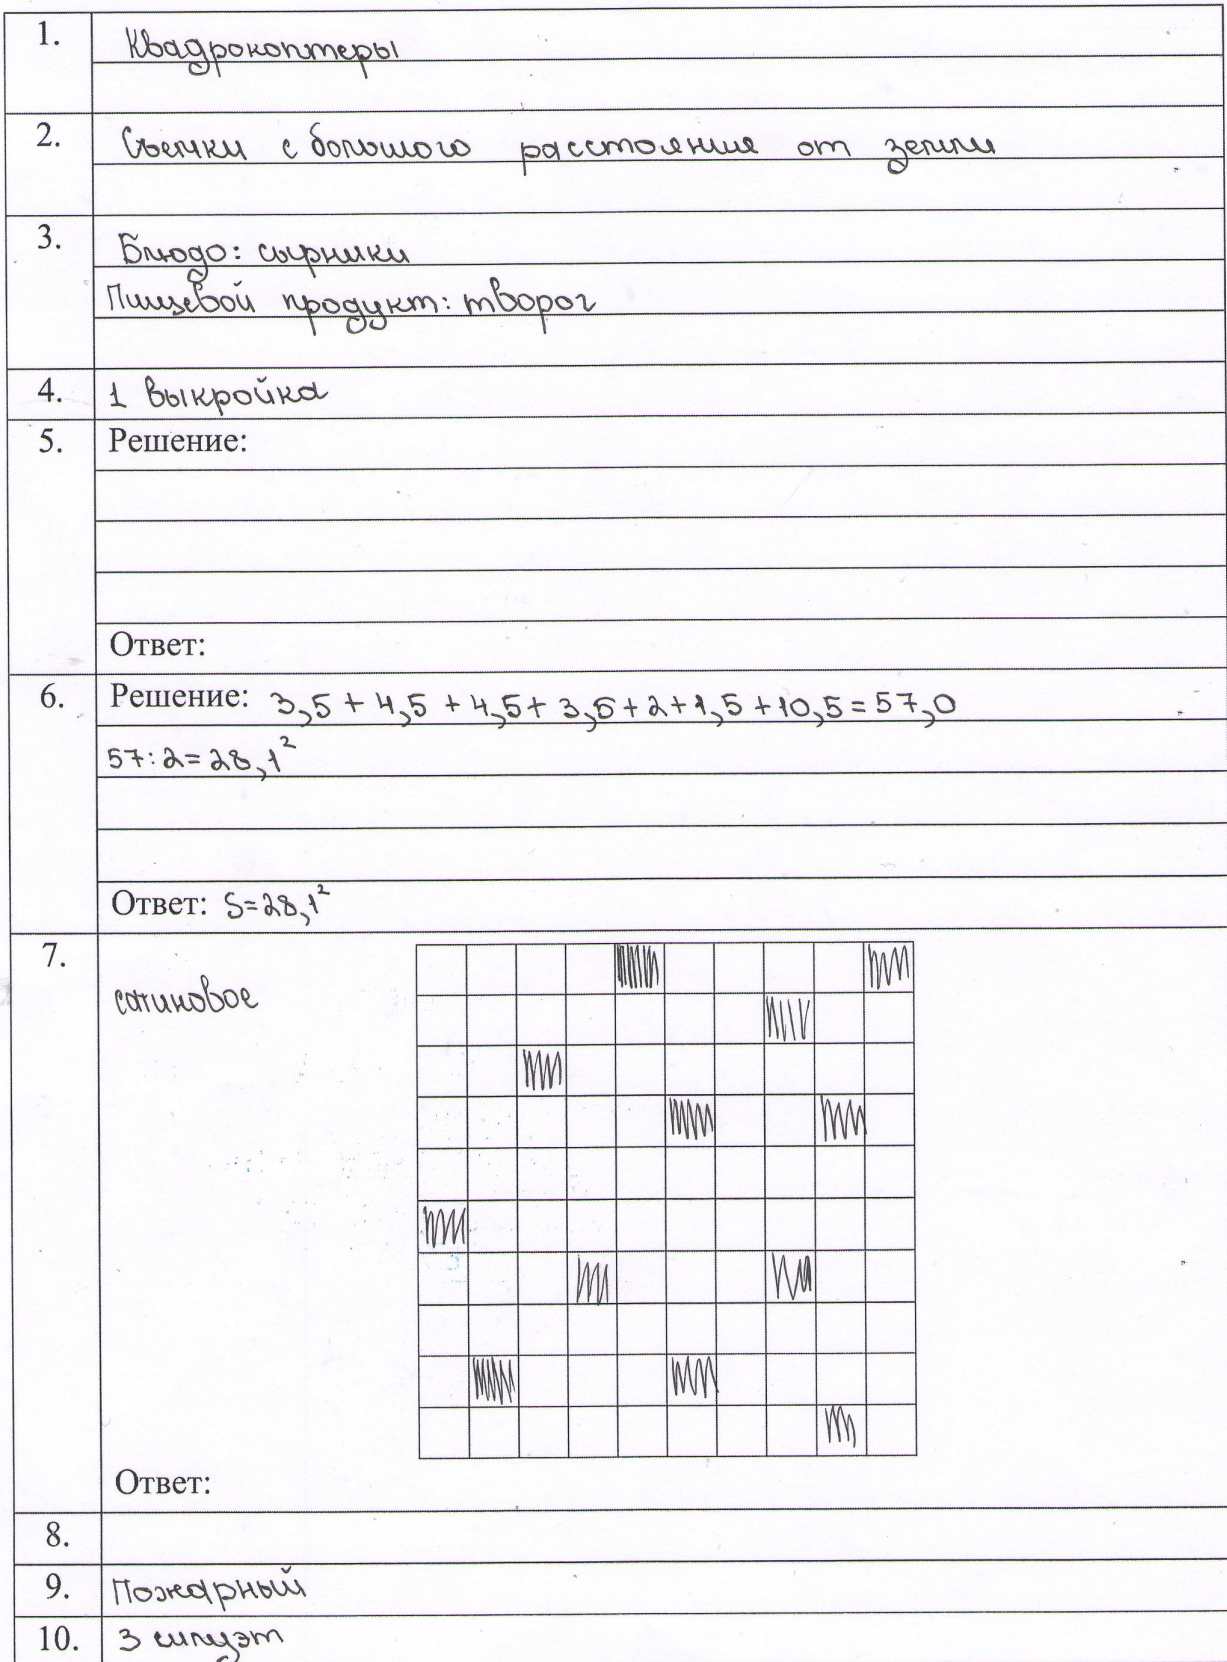 1.
Квадрокоптеры
2.
Сьемки с большого расстояние от земли
3.
Блюдо: сырники
Пищевой продукт: творог
4.
1 выкройка
5.
Решение:
Ответ:
6.
Решение: 3,5 + 4,5 + 4,5 + 3,5 + 2 + 1,5 + 10,5 = 57,0
57 : 2 = 28,1²
Ответ: S=28,1²
7.
сатиновое
Ответ:
8.
9.
Пожарный
10.
3 силуэт